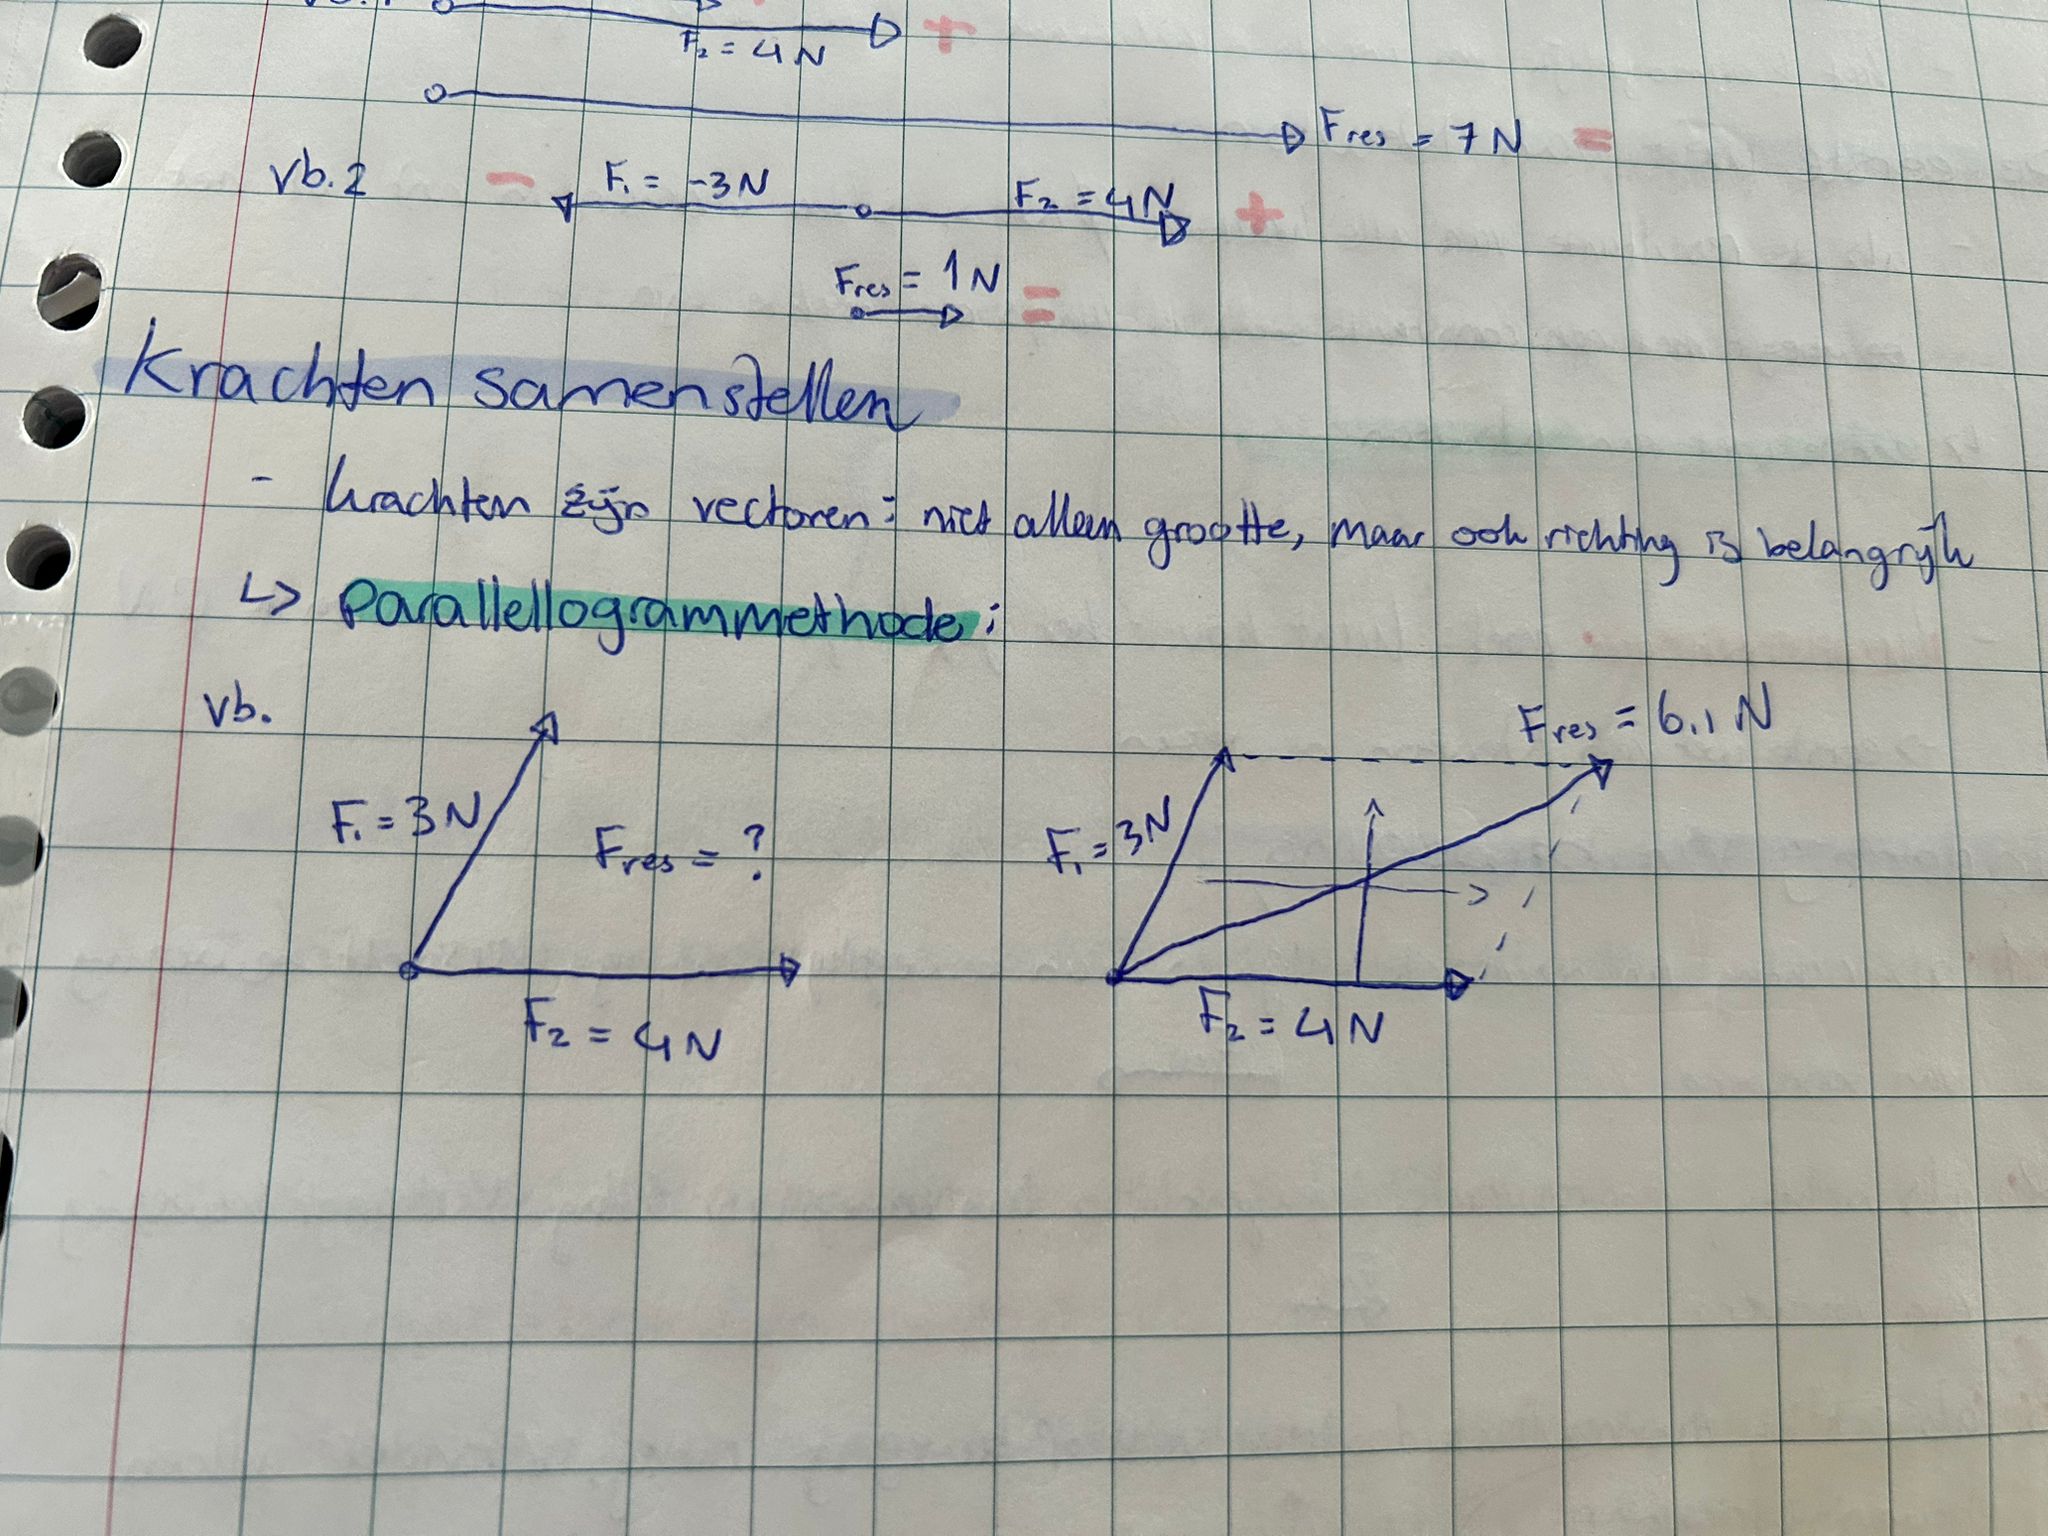 F₂ = 4N +
Fres = 7N =
vb.2 - F₁ = -3N F₂ = 4N +
Fres = 1N =
Krachten samenstellen
- krachten zijn vectoren: niet alleen grootte, maar ook richting is belangrijk
↳ Parallellogrammethode:
vb.
F₁ = 3N
Fres = ?
F₂ = 4N
Fres = 6.1 N
F₁ = 3N
F₂ = 4N